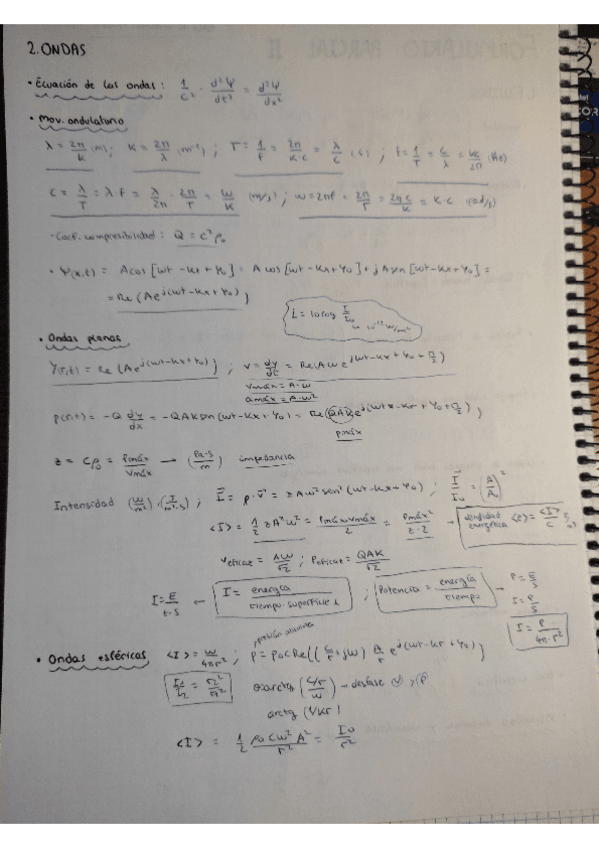 2. ONDAS
• Ecuación de las ondas: 1/c² · d²Ψ/dt² = d²Ψ/dx²
• Mov. ondulatorio
λ = 2π/K (m); K = 2π/λ (m⁻¹); T = 1/f = 2π/K·c = λ/c (s); f = 1/T = c/λ = Kc/2π (Hz)
c = λ/T = λ·f = λ/2π · 2π/T = ω/K (m/s); ω = 2πf = 2π/T = 2πc/λ = K·c (rad/s)
· Coef. compresibilidad: Q = c²ρ₀
• Ψ(x,t) = A cos [ωt - Kx + φ₀] = A cos [ωt - Kx + φ₀] + j A sen [ωt - Kx + φ₀] =
= Re (A e^j(ωt - Kx + φ₀))
L = 10 log I/I₀ → 10⁻¹² W/m²
• Ondas planas
Ψ(r,t) = Re (A e^j(ωt - Kx + φ₀)); v = dψ/dt = Re (Aω e^j(ωt - Kx + φ₀ + π/2))
vmáx = A·ω
amáx = A·ω²
p(r,t) = -Q dψ/dx = -QAK sen (ωt - Kx + φ₀) = Re (QAK e^j(ωt - Kr + φ₀ + π/2))
pmáx
z = cρ₀ = pmáx/vmáx → (Pa·s/m) impedancia
Intensidad (W/m²) (J/m²·s); I = p·v = zAω² sen² (ωt - Kx + φ₀); I/I₀ = (A/A₀)²
<I> = 1/2 zA²ω² = pmáx vmáx/2 = pmáx²/z·2 → densidad energética <ε> = <I>/c
veficaz = Aω/√2; peficaz = QAK/√2
I = E/t·S ← I = energía/tiempo·superficie ⊥; Potencia = energía/tiempo → P = E/t
I = P/S
I = P/4π·r²
presión acústica
• Ondas esféricas <I> = W/4πr²; p = ρ₀c Re ((c/r + jω) A/r e^j(ωt - Kr + φ₀))
I₁/I₂ = r₂²/r₁² arctg (c/r/ω) → desfase
arctg (1/Kr)
<I> = 1/2 ρ₀cω²A²/r² = I₀/r²